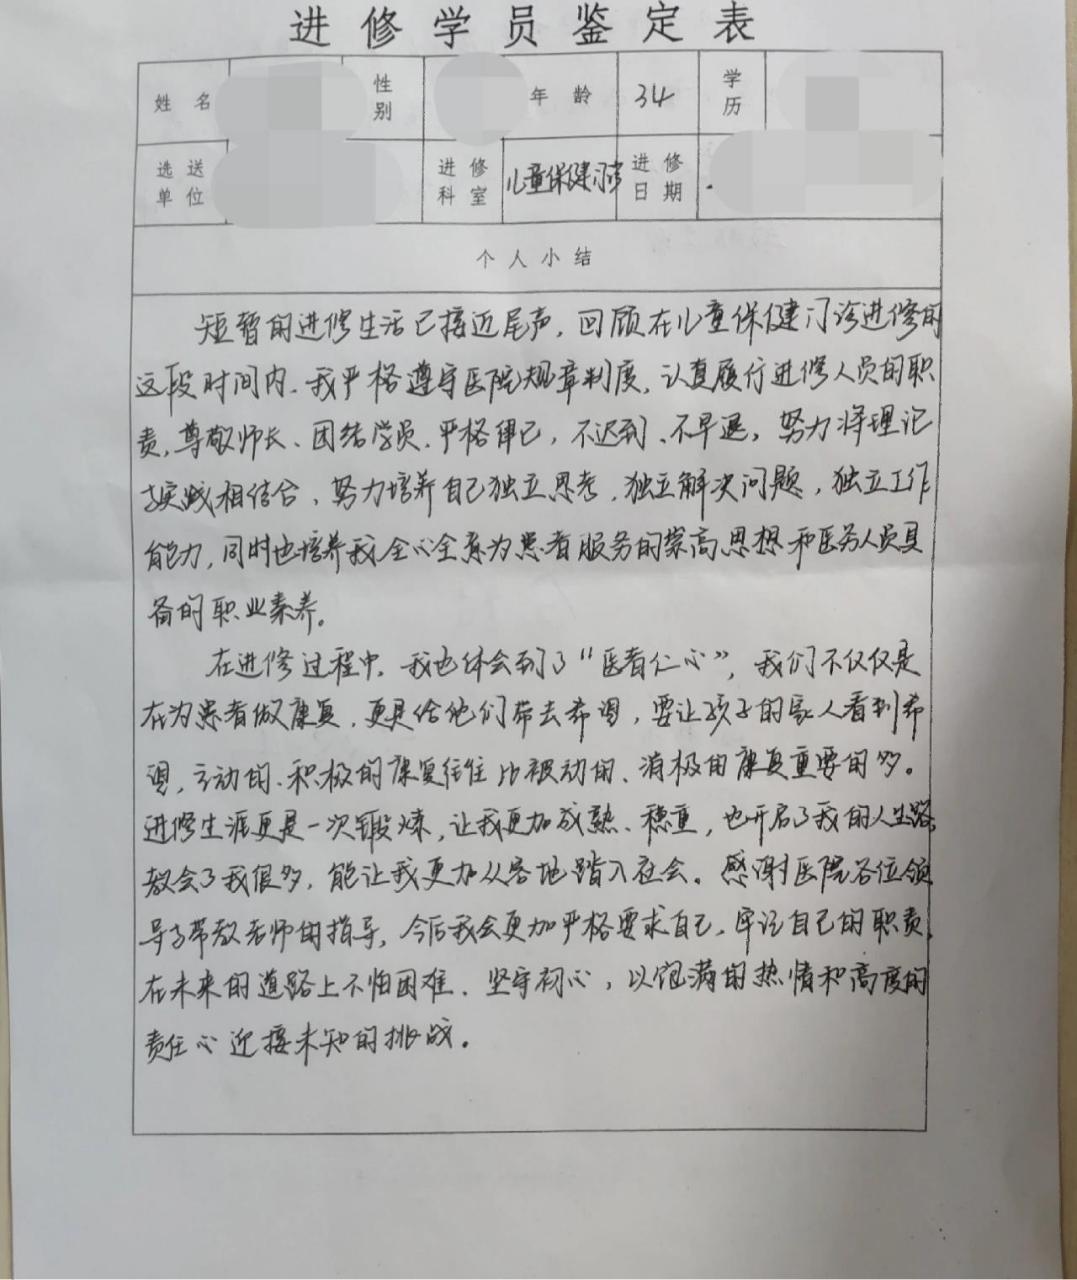 进修学员鉴定表
姓名 性别 年龄 34 学历
选送单位 进修科室 儿童保健门诊 进修日期
个人小结
短暂的进修生活已接近尾声，回顾在儿童保健门诊进修的
这段时间内、我严格遵守医院规章制度，认真履行进修人员的职
责，尊敬师长、团结学员、严格律己，不迟到、不早退，努力将理论
与实践相结合，努力培养自己独立思考，独立解决问题，独立工作
能力，同时也培养我全心全意为患者服务的崇高思想和医务人员具
备的职业素养。
在进修过程中，我也体会到了“医者仁心”，我们不仅仅是
在为患者做康复，更是给他们带去希望，要让孩子的家人看到希
望，主动的、积极的康复往往比被动的、消极的康复重要的多。
进修生涯更是一次锻炼，让我更加成熟、稳重，也开启了我的人生路，
教会了我很多，能让我更加从容地踏入社会。感谢医院各位领
导与带教老师的指导，今后我会更加严格要求自己，牢记自己的职责，
在未来的道路上不怕困难、坚守初心，以饱满的热情和高度的
责任心迎接未知的挑战。